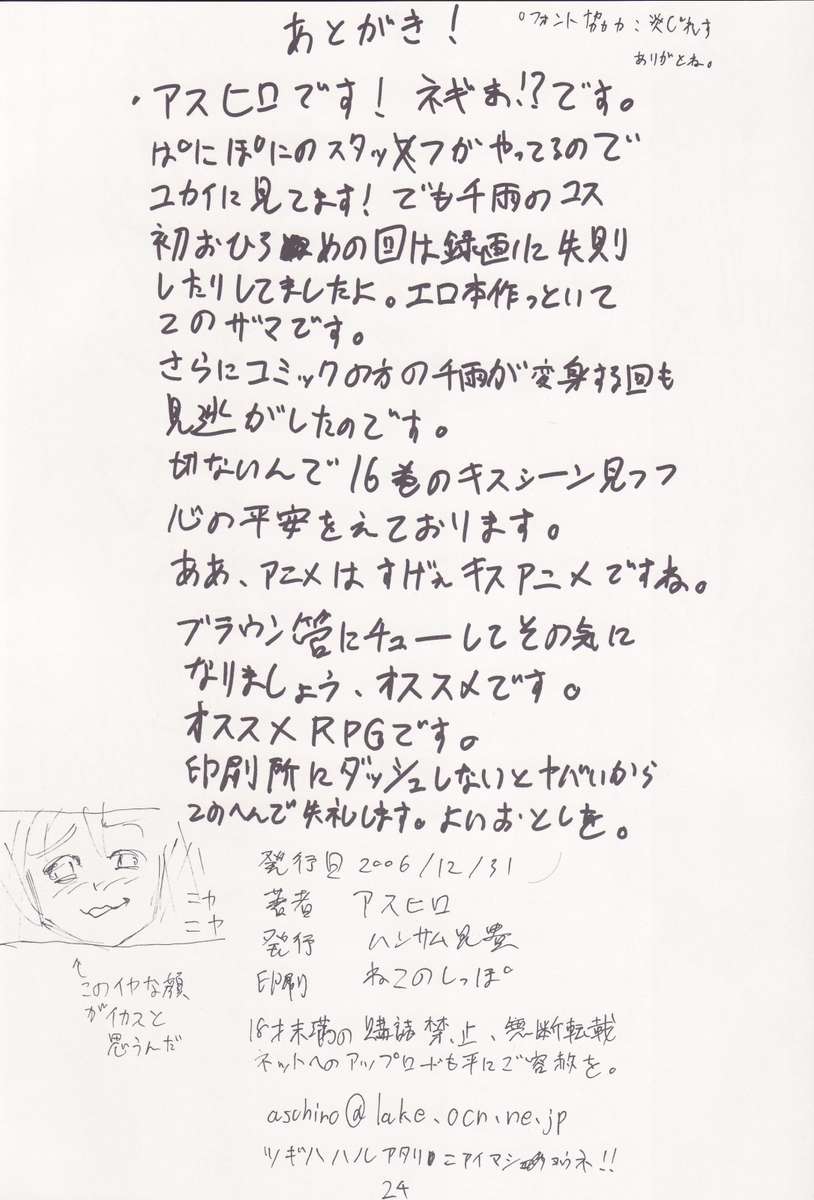 あとがき!
°フォント協力:炎じれす
ありがとね。
・アスヒロです! ネギま!?です。
ぱにぽにのスタッフがやってるので
ユカイに見てます!でも千雨のコス
初おひろめの回は録画に失則
したりしてましたよ。エロ本作っといて
このザマです。
さらにコミックの方の千雨が変身する回も
見逃がしたのです。
切ないんで16巻のキスシーン見つつ
心の平安をえております。
ああ、アニメはすげぇキスアニメですね。
ブラウン管にチューしてその気に
なりましょう、オススメです。
オススメRPGです。
印刷所にダッシュしないとヤバいから
このへんで失礼します。よいお・としを。
発行日 2006/12/31
著者 アスヒロ
発行 ハンサム兄貴
印刷 ねこのしっぽ
ニヤ
ニヤ
↑
このイヤな顔
がイカスと
思うんだ
18才未満の購読禁止、無断転載
ネットへのアップロードも平にご容赦を。
aschiro@lake.ocn.ne.jp
ツギハハルアタリニアイマショウネ!!
24